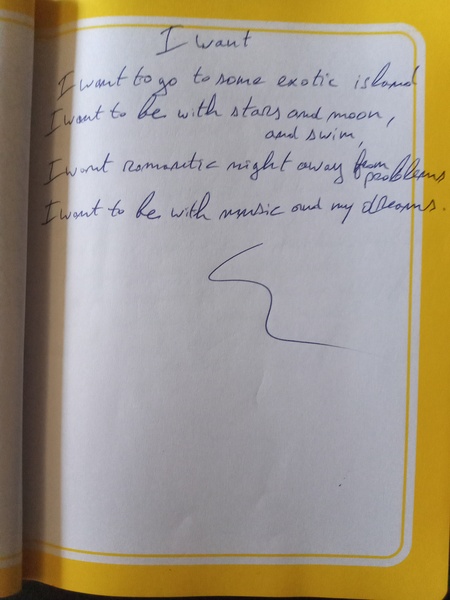 I want
I want to go to some exotic island
I want to be with stars and moon,
and swim,
I want romantic night away from
problems
I want to be with music and my dreams.